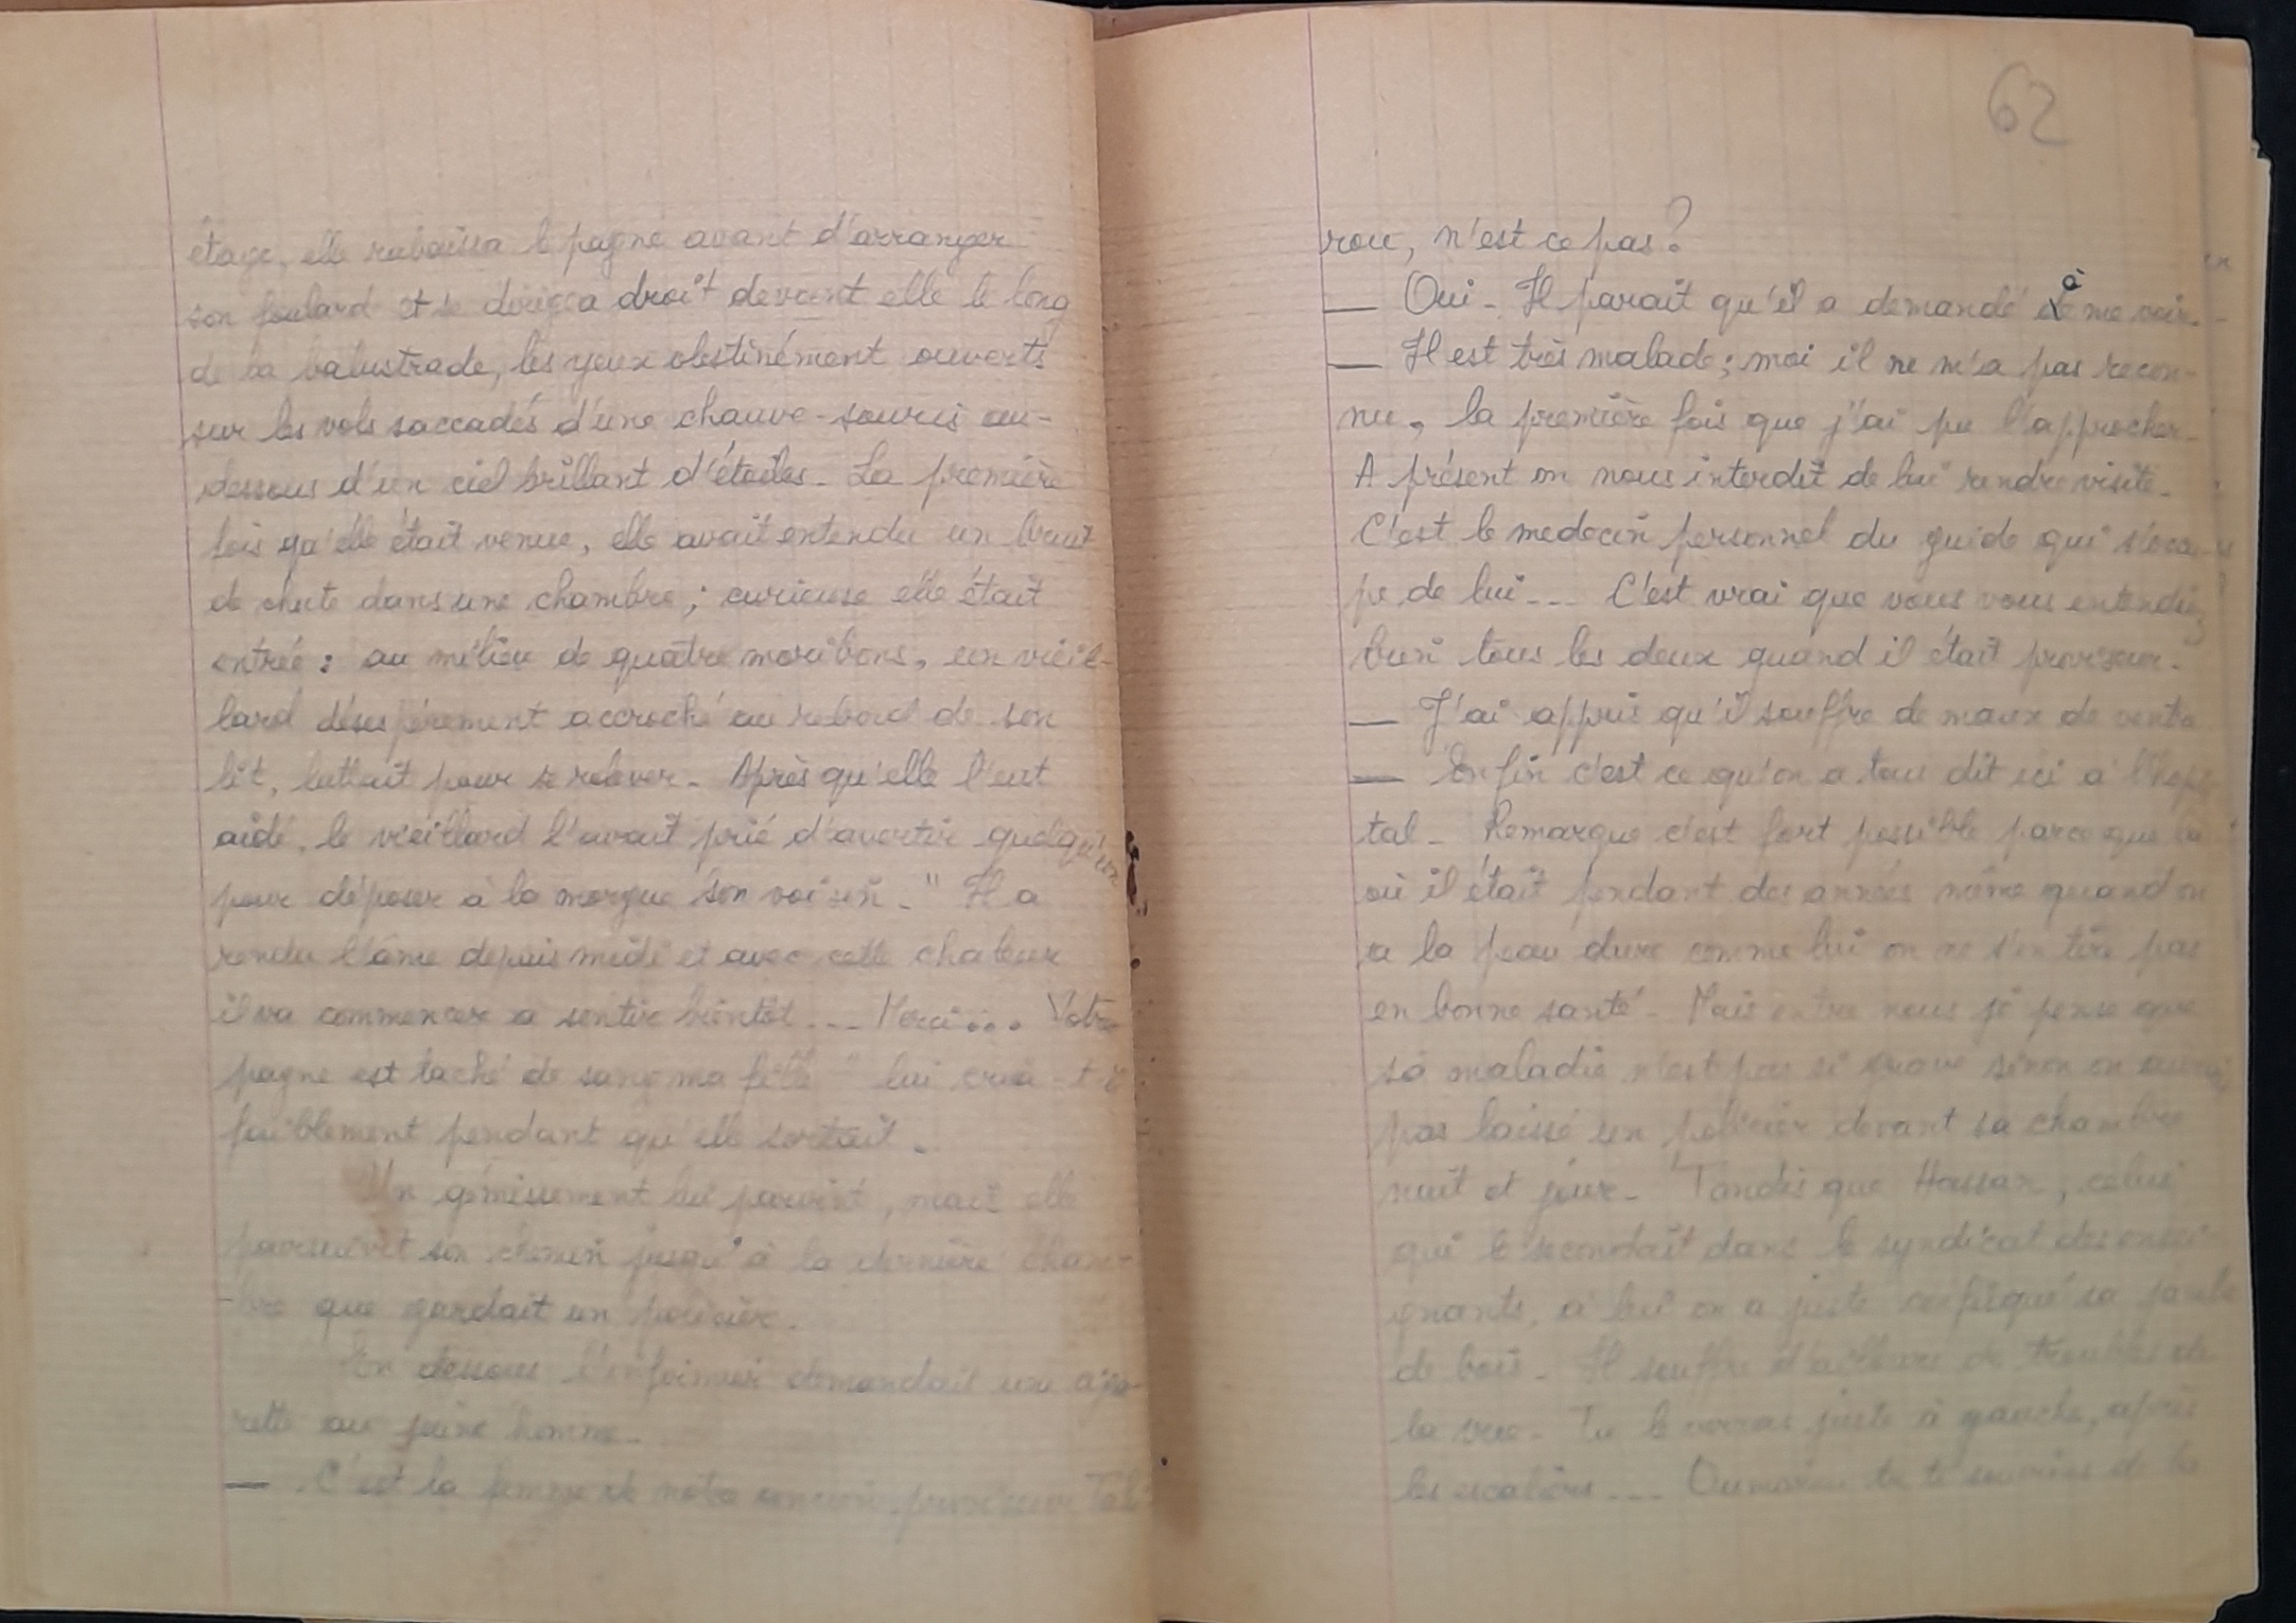 étage, elle rabaissa le pagne avant d'arranger
son foulard et se dirigea droit devant elle le long
de la balustrade, les yeux obstinément ouverts
sur les vols saccadés d'une chauve-souris au-
dessous d'un ciel brillant d'étoiles. La première
fois qu'elle était venue, elle avait entendu un bruit
de chute dans une chambre ; curieuse elle était
entrée : au milieu de quatre moribons, un vieil-
lard désespérement accroché au rebord de son
lit, luttait pour se relever. Après qu'elle l'eut
aidé, le vieillard l'avait prié d'avertir quelqu'un
pour déposer à la morgue son voisin. " Il a
rendu l'ame depuis midi et avec cette chaleur
il va commencer a sentir bientôt... Merci... Votre
pagne est taché de sang ma fille " lui cria-t-il
faiblement pendant qu'elle sortait.
Un gémissement lui parvint, mais elle
poursuivit son chemin jusqu'à la dernière cham-
bre que gardait un policier.
En dessous l'infirmier demandait une ciga-
rette au jeune homme.
— C'est la femme de notre ancien proviseur Tal
62
rou, n'est ce pas ?
— Oui - Il parait qu'il a demandé à me voir.
— Il est très malade ; moi il ne m'a pas recon-
nu, la première fois que j'ai pu l'approcher.
A présent on nous interdit de lui rendre visite.
C'est le medecin personnel du guide qui s'occu-
pe de lui... C'est vrai que vous vous entendiez
bien tous les deux quand il était proviseur.
— J'ai appris qu'il souffre de maux de ventre
— Enfin c'est ce qu'on a tous dit ici à l'hopi
tal - Remarque c'est fort possible parce que là
où il était pendant des années même quand on
a la peau dure comme lui on ne s'en tire pas
en bonne santé - Mais entre nous je pense que
sa maladie n'est pas si grave sinon on aurait
pas laissé un policier devant sa chambre
nuit et jour - Tandis que Hassan, celui
qui le secondait dans le syndicat des ensei-
gnants, à lui on a juste confisqué sa jambe
de bois - Il souffre d'ailleurs de troubles de
la vue - Tu le verras juste à gauche, après
les escaliers... Oumarou tu te souviens de la